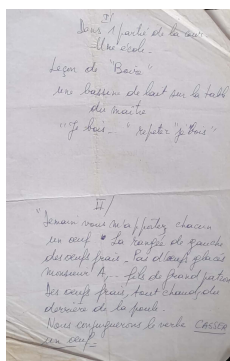 I/
Dans 1 partie de la cour
Une école.
Leçon de "Boire"
une bassine de lait sur la table
du maître
"Je bois..." répéter "je bois"
II/
"Demain vous m'apportez chacun
un œuf. La rangée de gauche
des œufs frais. Pas d'œufs glacés
monsieur A, fils de grand patron
Des œufs frais, tout chauds du
derrière de la poule.
Nous conjuguerons le verbe CASSER
un œuf.